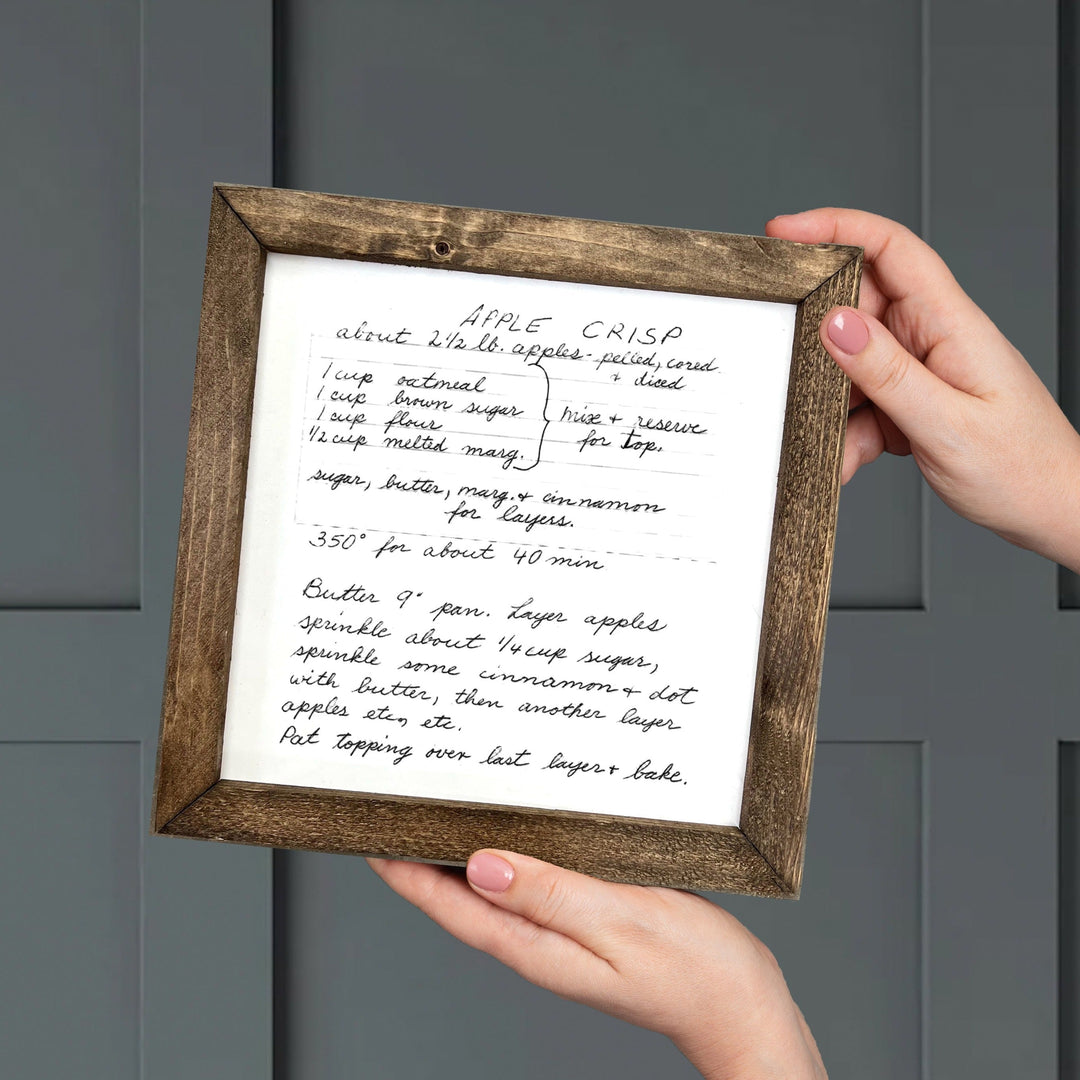 APPLE CRISP
about 2 1/2 lb. apples - pelled, cored
+ diced
1 cup oatmeal
1 cup brown sugar
1 cup flour
1/2 cup melted marg.
mix + reserve
for top.
sugar, butter, marg. + cinnamon
for layers.
350° for about 40 min
Butter 9" pan. Layer apples
sprinkle about 1/4 cup sugar,
sprinkle some cinnamon + dot
with butter, then another layer
apples etc, etc.
Pat topping over last layer + bake.